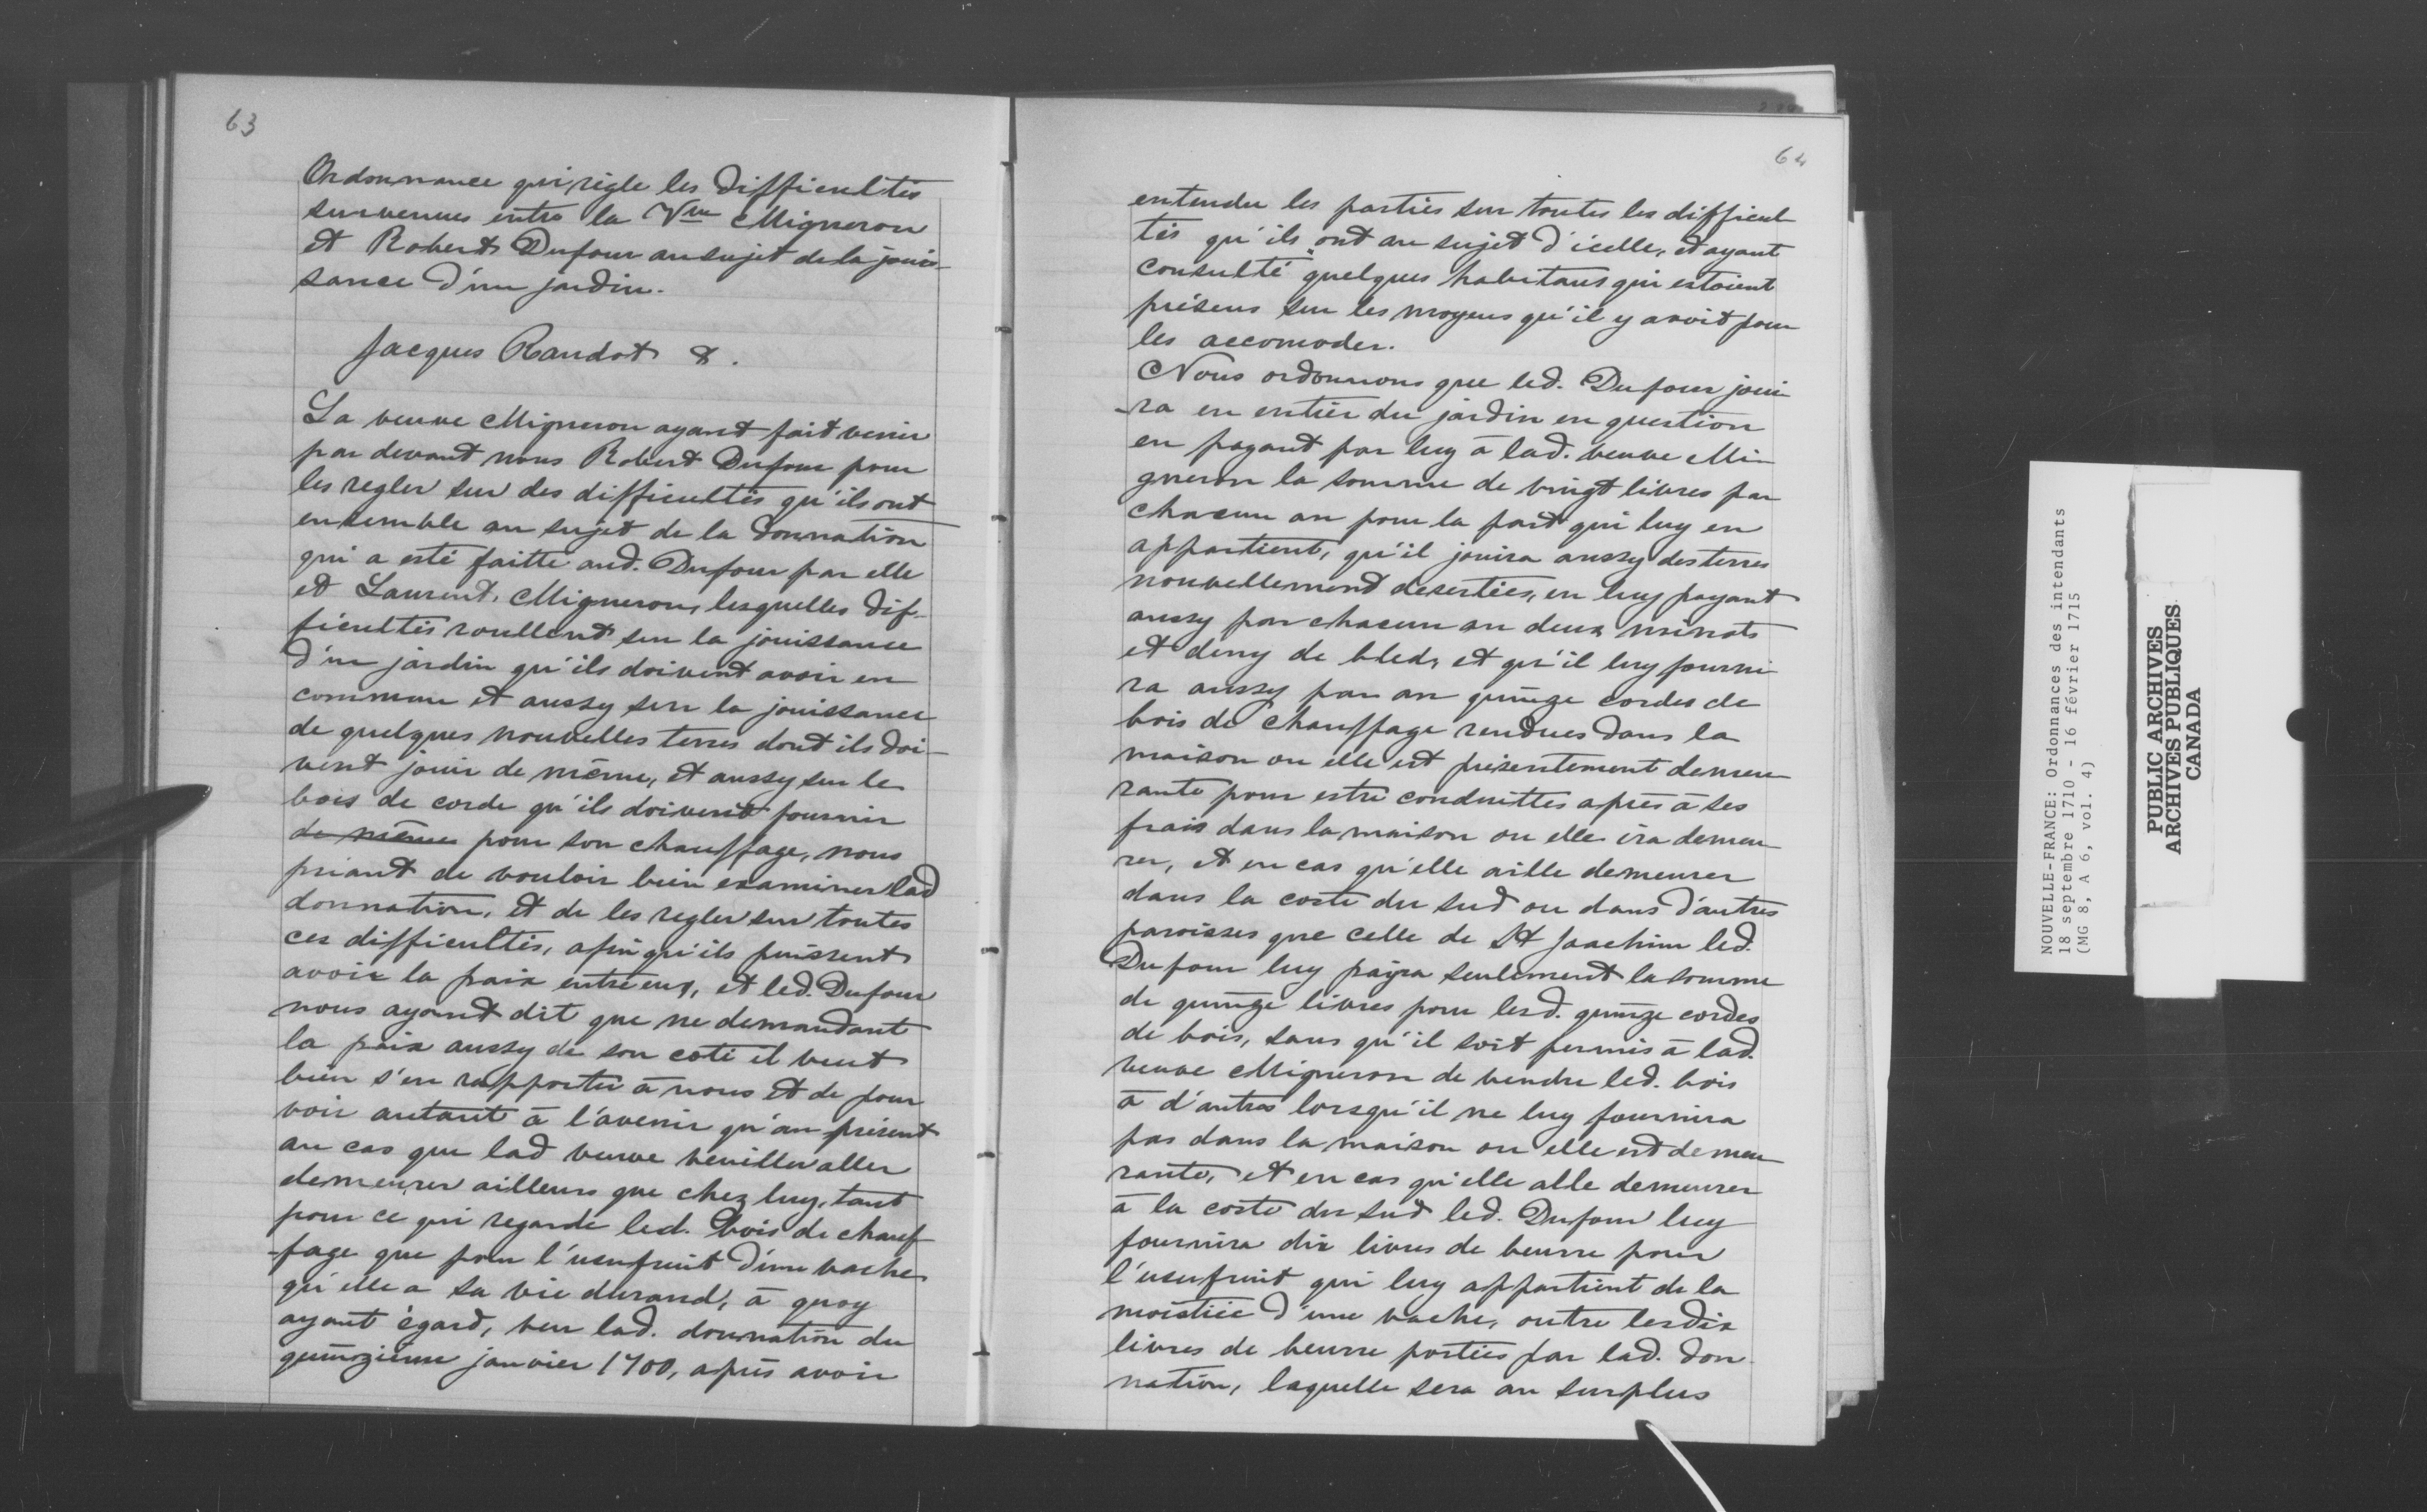 63
Ordonnance qui règle les difficultés
survenues entre la Vve Migneron
et Robert Dufour au sujet de la jouis-
sance d'un jardin.
Jacques Raudot &.
La veuve Migneron ayant fait venir
par devant nous Robert Dufour pour
les regler sur des difficultés qu'ils ont
ensemble au sujet de la donnation
qui a esté faitte aud. Dufour par elle
et Laurent Migneron, lesquelles dif-
ficultés roullent sur la jouissance
d'un jardin qu'ils doivent avoir en
commun et aussy sur la jouissance
de quelques nouvelles terres dont ils doi-
vent jouir de même, et aussy sur le
bois de corde qu'ils doivent fournir
de même pour son chauffage, nous
priant de vouloir bien examiner lad
donnation, et de les regler sur toutes
ces difficultés, afin qu'ils puissent
avoir la paix entre eux, et led. Dufour
nous ayant dit que ne demandant
la paix aussy de son coté il veut
bien s'en rapporter à nous et de pour
voir autant à l'avenir qu'au présent
au cas que lad veuve veuille aller
demeurer ailleurs que chez luy, tant
pour ce qui regarde led. bois de chauf
-fage que pour l'usufruit d'une vache
qu'elle a sa vie durand, à quoy
ayant égard, veu lad. donnation du
quinzième janvier 1700, après avoir
64
entendu les parties sur toutes les difficul
tés qu'ils ont au sujet d'icelle, et ayant
consulté quelques habitans qui estoient
présens sur les moyens qu'il y avoit pour
les accomoder.
Nous ordonnons que led. Dufour joui
-ra en entier du jardin en question
en payant par luy à lad. veuve Mi-
gneron la somme de vingt livres par
chacun an pour la part qui luy en
appartient, qu'il jouira aussy des terres
nouvellement desertées, en luy payant
aussy par chacun an deux minots
et demy de bled, et qu'il luy fourni
ra aussy par an quinze cordes de
bois de chauffage rendues dans la
maison ou elle est présentement demeu-
rante pour estre conduittes après à ses
frais dans la maison ou elle ira demeu-
rer, et en cas qu'elle aille demeurer
dans la coste du sud ou dans d'autres
paroisses que celle de St Joachim led.
Dufour luy payra seulement la somme
de quinze livres pour lesd. quinze cordes
de bois, sans qu'il soit permis à lad.
veuve Migneron de vendre led. bois
à d'autres lorsqu'il ne luy fournira
pas dans la maison ou elle est demeu-
rante, et en cas qu'elle alle demeurer
à la coste du sud led. Dufour luy
fournira dix livres de beurre pour
l'usufruit qui luy appartient de la
moistiée d'une vache, outre les dix
livres de beurre portées par lad. don-
nation, laquelle sera au surplus
NOUVELLE-FRANCE: Ordonnances des intendants
18 septembre 1710 - 16 février 1715
(MG 8, A 6, vol. 4)
PUBLIC ARCHIVES
ARCHIVES PUBLIQUES
CANADA